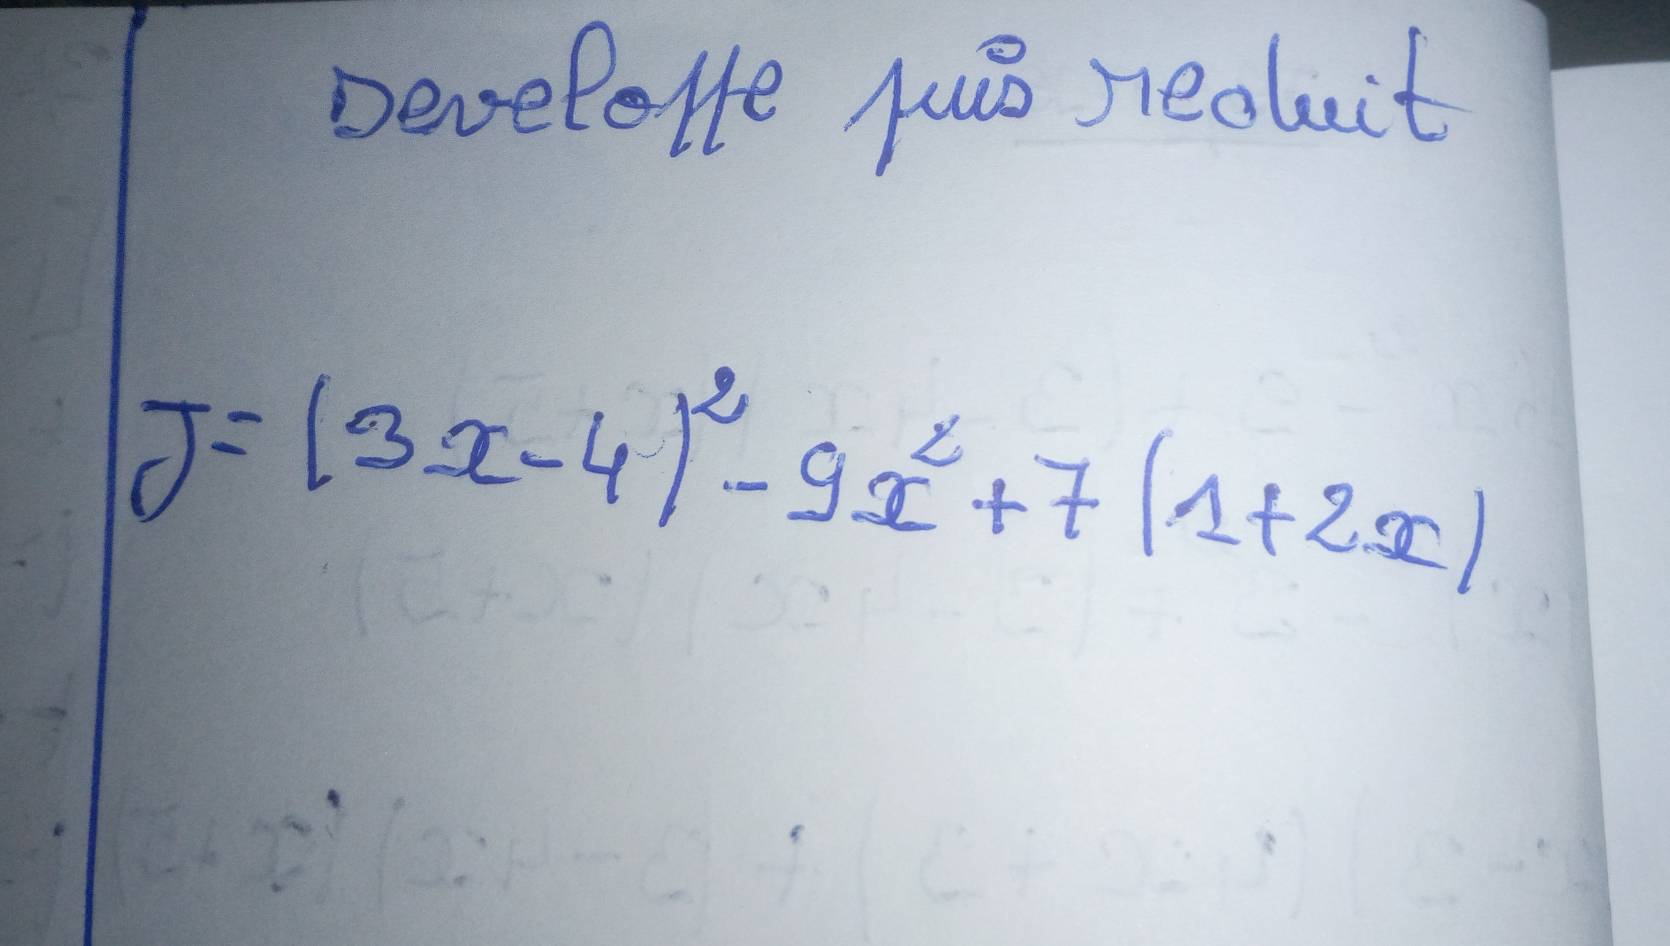 Developpe puis reduit
J = (3x - 4)² - 9x² + 7 (1 + 2x)